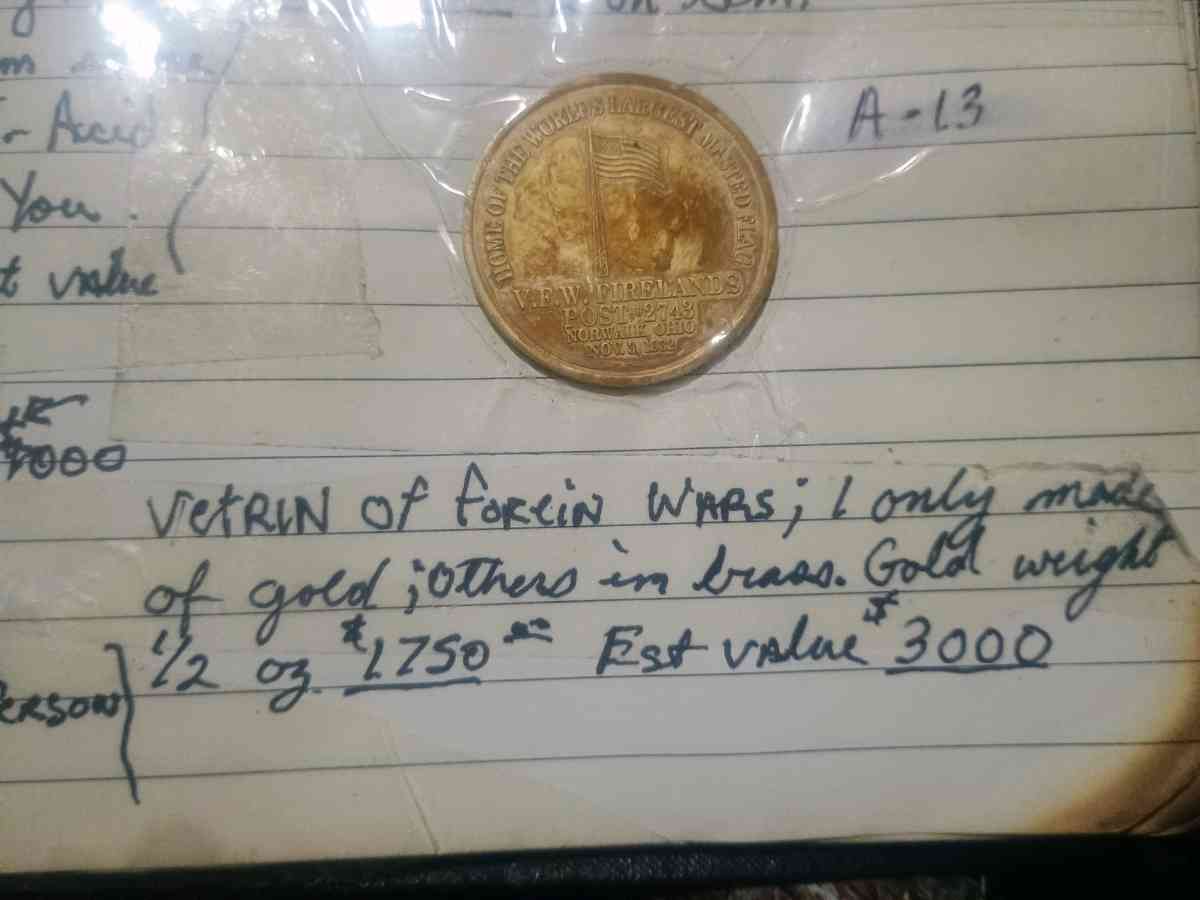 on
A-13
- Acid
You.
t value
HOME OF THE WORLD'S LARGEST MASTED FLAG
V.F.W. FIRELANDS
POST #2743
NORWALK, OHIO
NOV. 9, 1932
VetRIN Of foReiN WARS; 1 only made
of gold; others in brass. Gold weight
1/2 oz. $1750 Est value $3000
PERSON